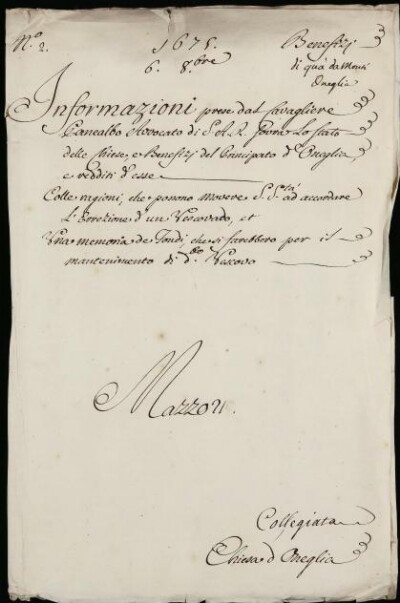 N.° 2.
1675.
6. 8.bre
Benefizj
di quà da Monti
Oneglia
Informazioni prese dal Cavagliere
Canealbo Avocato di S.A.R. sovra Lo stato
delle Chiese, e Benefizj del Principato d'Oneglia,
e redditi d'esse
Colle ragioni, che possono movere S. S.tà ad accordare
L'Errezione d'un Vescovado, et
Una memoria de Fondi che si farebbero per il
mantenimento di d.to Vescovo
Mazzo
Collegiata
Chiesa d'Oneglia